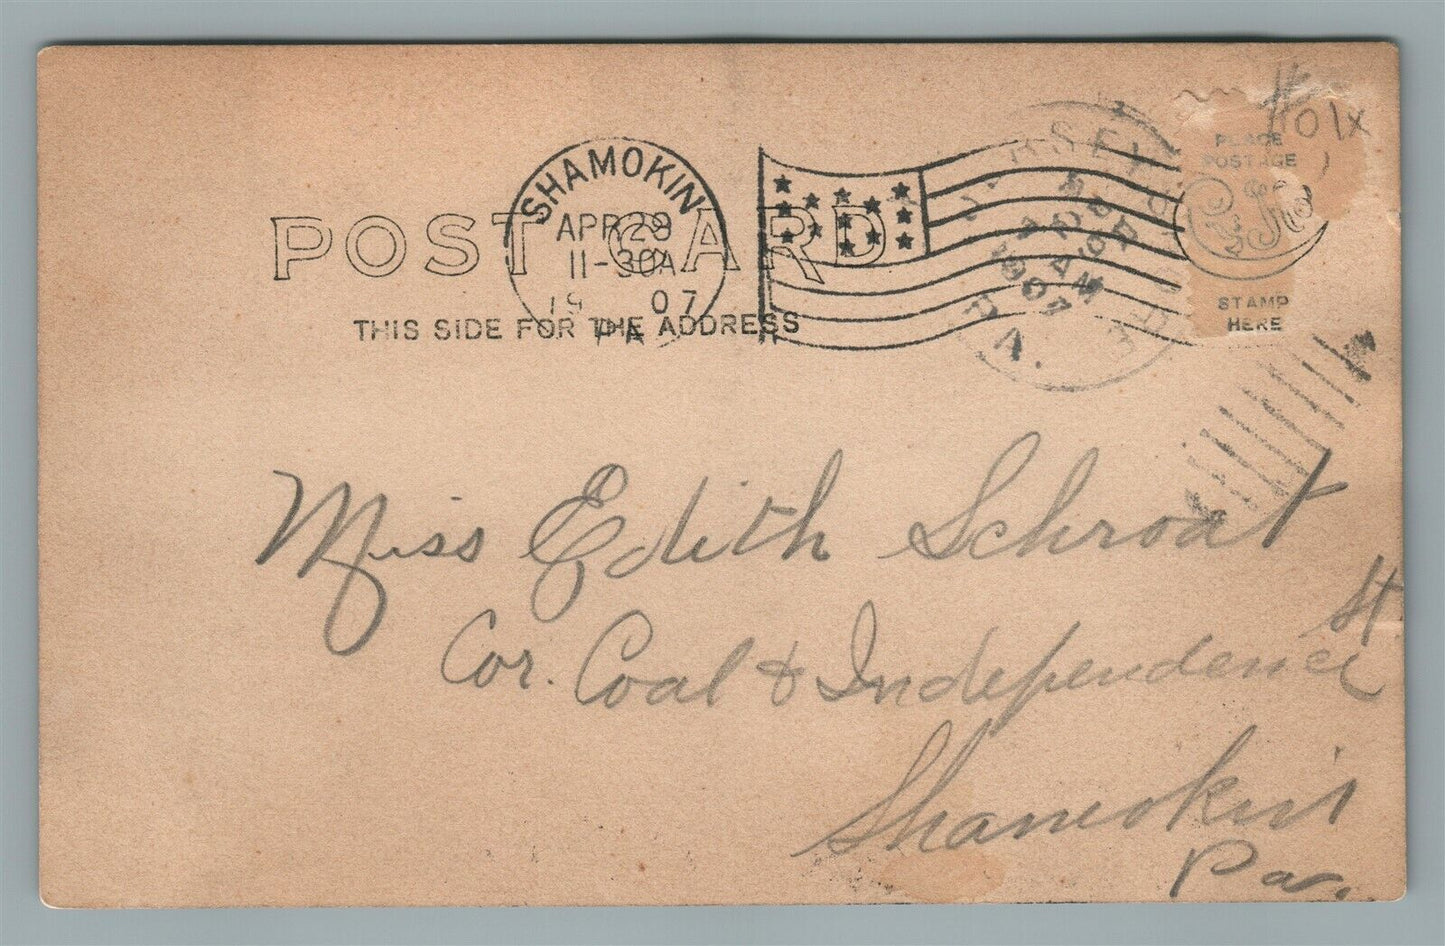 POST CARD
THIS SIDE FOR THE ADDRESS
SHAMOKIN
APR 29
11-30A
19 07
PA
PLACE
POSTAGE
STAMP
HERE
1907
Miss Edith Schroat
Cor. Coal & Independence St
Shamokin
Pa.